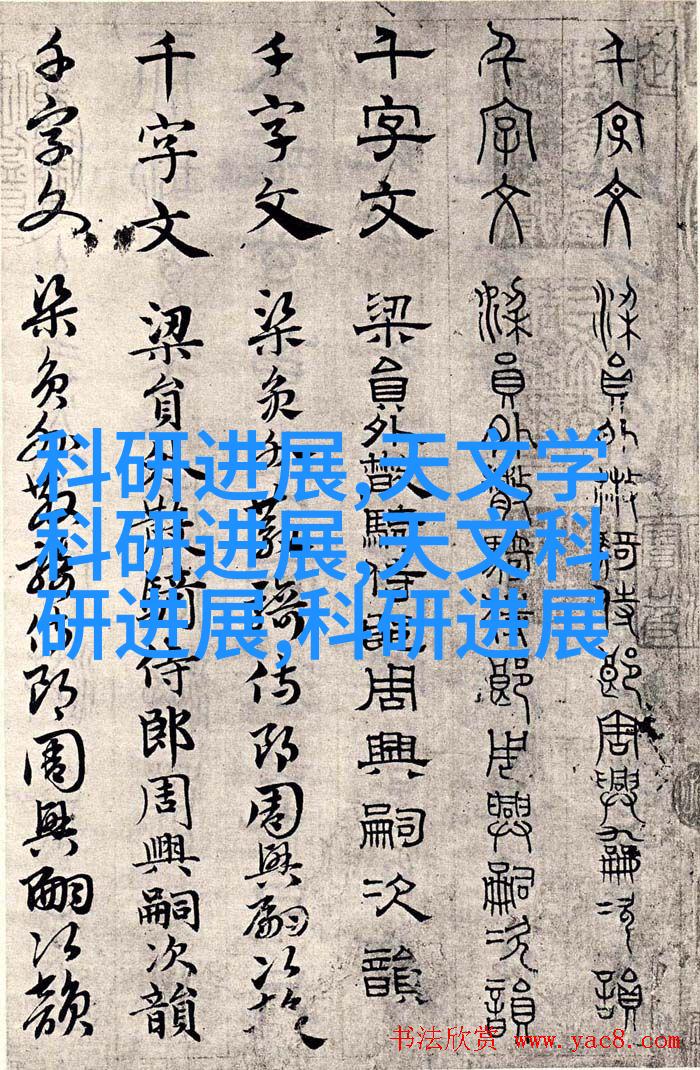 千字文
梁員外散騎侍郎周興嗣次韻
千字文
梁員外散騎侍郎周興嗣次韻
千字文
梁員外散騎侍郎周興嗣次韻
千字文
梁員外散騎侍郎周興嗣次韻
千字文
梁員外散騎侍郎周興嗣次韻
千字文
梁員外散騎侍郎周興嗣次韻
科研进展,天文学
科研进展,天文科
研进展,科研进展
书法欣赏 www.yac8.com